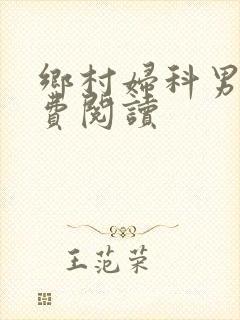 鄉村婦科男
費閱讀
王范荣